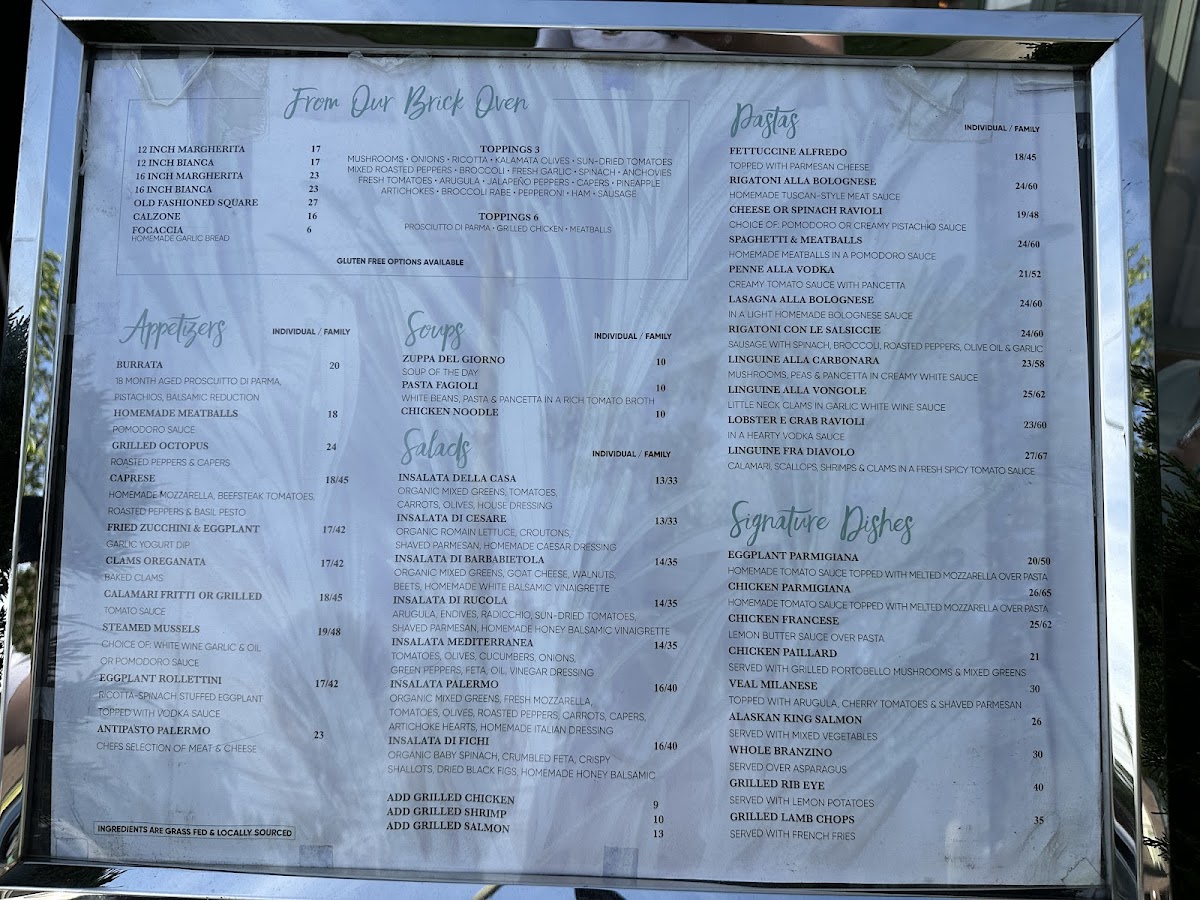 From Our Brick Oven
12 INCH MARGHERITA 17
12 INCH BIANCA 17
16 INCH MARGHERITA 23
16 INCH BIANCA 23
OLD FASHIONED SQUARE 27
CALZONE 16
FOCACCIA 6
HOMEMADE GARLIC BREAD
TOPPINGS 3
MUSHROOMS • ONIONS • RICOTTA • KALAMATA OLIVES • SUN-DRIED TOMATOES
MIXED ROASTED PEPPERS • BROCCOLI • FRESH GARLIC • SPINACH • ANCHOVIES
FRESH TOMATOES • ARUGULA • JALAPEÑO PEPPERS • CAPERS • PINEAPPLE
ARTICHOKES • BROCCOLI RABE • PEPPERONI • HAM • SAUSAGE
TOPPINGS 6
PROSCIUTTO DI PARMA • GRILLED CHICKEN • MEATBALLS
GLUTEN FREE OPTIONS AVAILABLE
Appetizers INDIVIDUAL / FAMILY
BURRATA 20
18 MONTH AGED PROSCUITTO DI PARMA,
PISTACHIOS, BALSAMIC REDUCTION
HOMEMADE MEATBALLS 18
POMODORO SAUCE
GRILLED OCTOPUS 24
ROASTED PEPPERS & CAPERS
CAPRESE 18/45
HOMEMADE MOZZARELLA, BEEFSTEAK TOMATOES,
ROASTED PEPPERS & BASIL PESTO
FRIED ZUCCHINI & EGGPLANT 17/42
GARLIC YOGURT DIP
CLAMS OREGANATA 17/42
BAKED CLAMS
CALAMARI FRITTI OR GRILLED 18/45
TOMATO SAUCE
STEAMED MUSSELS 19/48
CHOICE OF: WHITE WINE GARLIC & OIL
OR POMODORO SAUCE
EGGPLANT ROLLETTINI 17/42
RICOTTA-SPINACH STUFFED EGGPLANT
TOPPED WITH VODKA SAUCE
ANTIPASTO PALERMO 23
CHEFS SELECTION OF MEAT & CHEESE
INGREDIENTS ARE GRASS FED & LOCALLY SOURCED
Soups INDIVIDUAL / FAMILY
ZUPPA DEL GIORNO 10
SOUP OF THE DAY
PASTA FAGIOLI 10
WHITE BEANS, PASTA & PANCETTA IN A RICH TOMATO BROTH
CHICKEN NOODLE 10
Salads INDIVIDUAL / FAMILY
INSALATA DELLA CASA 13/33
ORGANIC MIXED GREENS, TOMATOES,
CARROTS, OLIVES, HOUSE DRESSING
INSALATA DI CESARE 13/33
ORGANIC ROMAIN LETTUCE, CROUTONS,
SHAVED PARMESAN, HOMEMADE CAESAR DRESSING
INSALATA DI BARBABIETOLA 14/35
ORGANIC MIXED GREENS, GOAT CHEESE, WALNUTS,
BEETS, HOMEMADE WHITE BALSAMIC VINAIGRETTE
INSALATA DI RUCOLA 14/35
ARUGULA, ENDIVES, RADICCHIO, SUN-DRIED TOMATOES,
SHAVED PARMESAN, HOMEMADE HONEY BALSAMIC VINAIGRETTE
INSALATA MEDITERRANEA 14/35
TOMATOES, OLIVES, CUCUMBERS, ONIONS,
GREEN PEPPERS, FETA, OIL, VINEGAR DRESSING
INSALATA PALERMO 16/40
ORGANIC MIXED GREENS, FRESH MOZZARELLA,
TOMATOES, OLIVES, ROASTED PEPPERS, CARROTS, CAPERS,
ARTICHOKE HEARTS, HOMEMADE ITALIAN DRESSING
INSALATA DI FICHI 16/40
ORGANIC BABY SPINACH, CRUMBLED FETA, CRISPY
SHALLOTS, DRIED BLACK FIGS, HOMEMADE HONEY BALSAMIC
ADD GRILLED CHICKEN 9
ADD GRILLED SHRIMP 10
ADD GRILLED SALMON 13
Pastas INDIVIDUAL / FAMILY
FETTUCCINE ALFREDO 18/45
TOPPED WITH PARMESAN CHEESE
RIGATONI ALLA BOLOGNESE 24/60
HOMEMADE TUSCAN-STYLE MEAT SAUCE
CHEESE OR SPINACH RAVIOLI 19/48
CHOICE OF: POMODORO OR CREAMY PISTACHIO SAUCE
SPAGHETTI & MEATBALLS 24/60
HOMEMADE MEATBALLS IN A POMODORO SAUCE
PENNE ALLA VODKA 21/52
CREAMY TOMATO SAUCE WITH PANCETTA
LASAGNA ALLA BOLOGNESE 24/60
IN A LIGHT HOMEMADE BOLOGNESE SAUCE
RIGATONI CON LE SALSICCIE 24/60
SAUSAGE WITH SPINACH, BROCCOLI, ROASTED PEPPERS, OLIVE OIL & GARLIC
LINGUINE ALLA CARBONARA 23/58
MUSHROOMS, PEAS & PANCETTA IN CREAMY WHITE SAUCE
LINGUINE ALLA VONGOLE 25/62
LITTLE NECK CLAMS IN GARLIC WHITE WINE SAUCE
LOBSTER E CRAB RAVIOLI 23/60
IN A HEARTY VODKA SAUCE
LINGUINE FRA DIAVOLO 27/67
CALAMARI, SCALLOPS, SHRIMPS & CLAMS IN A FRESH SPICY TOMATO SAUCE
Signature Dishes
EGGPLANT PARMIGIANA 20/50
HOMEMADE TOMATO SAUCE TOPPED WITH MELTED MOZZARELLA OVER PASTA
CHICKEN PARMIGIANA 26/65
HOMEMADE TOMATO SAUCE TOPPED WITH MELTED MOZZARELLA OVER PASTA
CHICKEN FRANCESE 25/62
LEMON BUTTER SAUCE OVER PASTA
CHICKEN PAILLARD 21
SERVED WITH GRILLED PORTOBELLO MUSHROOMS & MIXED GREENS
VEAL MILANESE 30
TOPPED WITH ARUGULA, CHERRY TOMATOES & SHAVED PARMESAN
ALASKAN KING SALMON 26
SERVED WITH MIXED VEGETABLES
WHOLE BRANZINO 30
SERVED OVER ASPARAGUS
GRILLED RIB EYE 40
SERVED WITH LEMON POTATOES
GRILLED LAMB CHOPS 35
SERVED WITH FRENCH FRIES